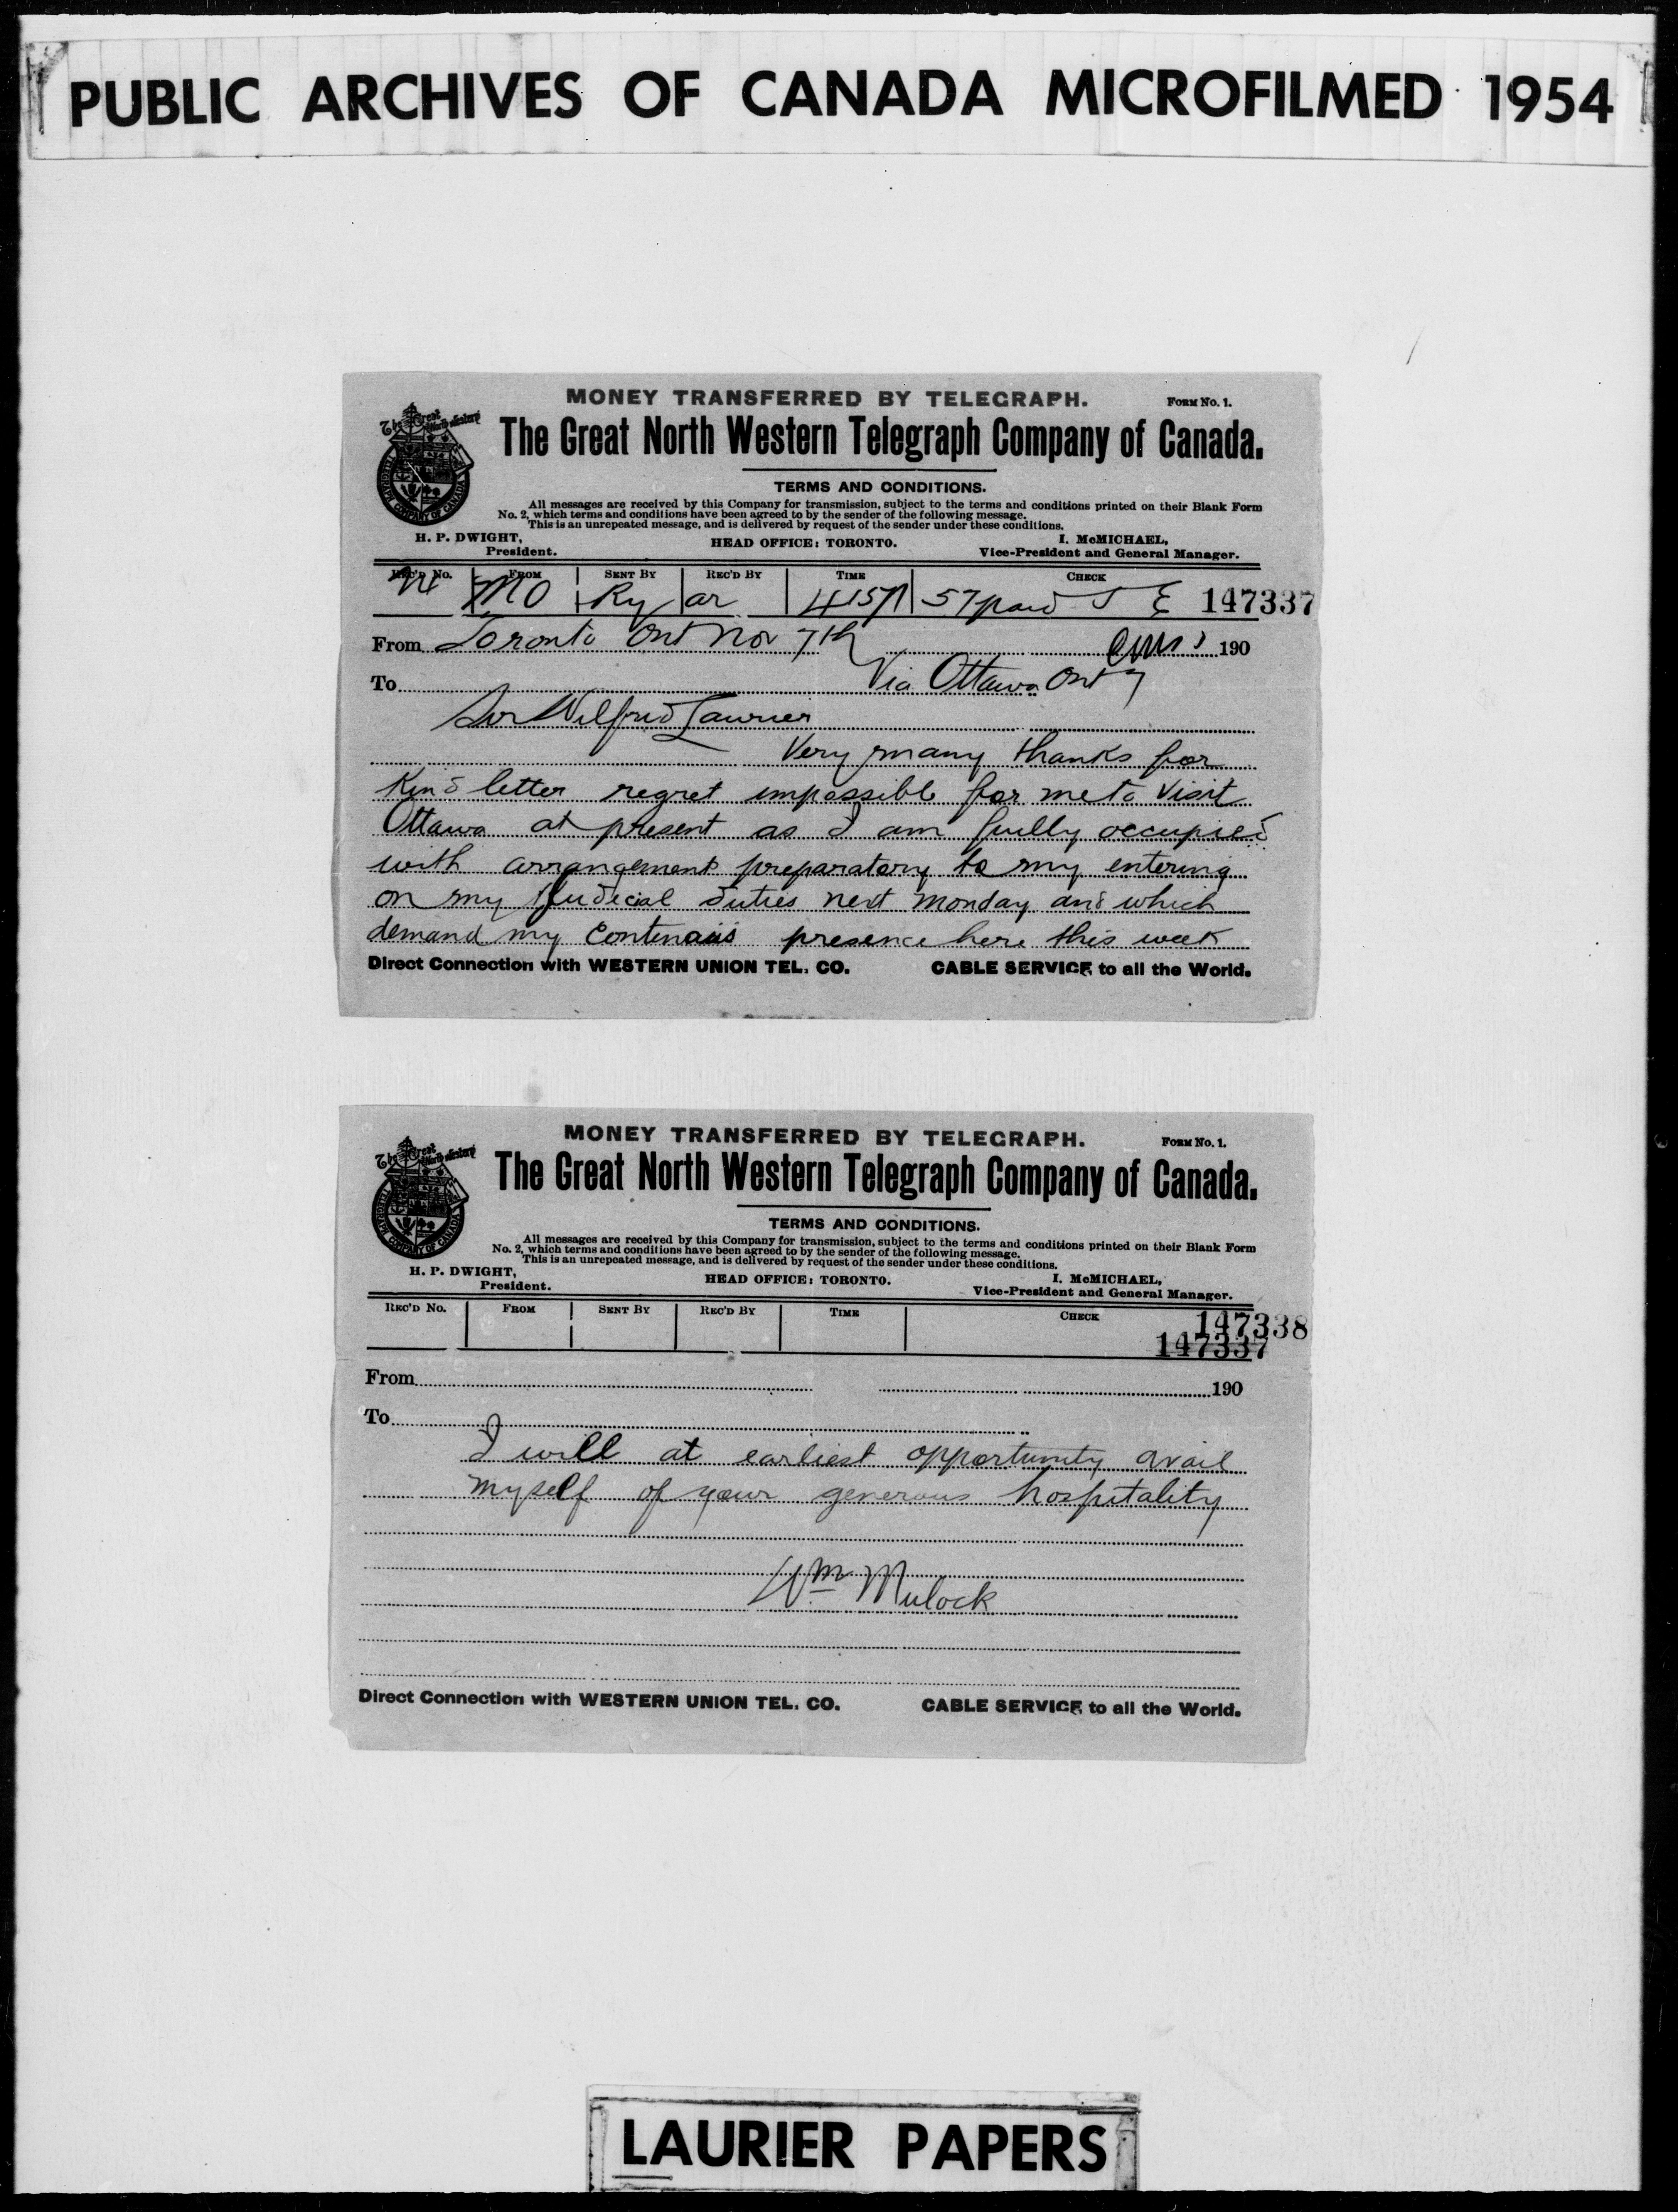 PUBLIC ARCHIVES OF CANADA MICROFILMED 1954
MONEY TRANSFERRED BY TELEGRAPH. FORM No. 1.
The Great North Western Telegraph Company of Canada.
TERMS AND CONDITIONS.
All messages are received by this Company for transmission, subject to the terms and conditions printed on their Blank Form
No. 2, which terms and conditions have been agreed to by the sender of the following message.
This is an unrepeated message, and is delivered by request of the sender under these conditions.
H. P. DWIGHT, HEAD OFFICE: TORONTO. I. McMICHAEL,
President. Vice-President and General Manager.
REC'D No. FROM SENT BY REC'D BY TIME CHECK
MO Ry ar 415P 57 paid 147337
From Toronto Ont Nov 7th 190
To Via Ottawa Ont 7
Sir Wilfrid Laurier
Very many thanks for
Kind letter regret impossible for me to visit
Ottawa at present as I am fully occupied
with arrangement preparatory to my entering
on my Judicial duties next Monday and which
demand my presence here this week
Direct Connection with WESTERN UNION TEL. CO. CABLE SERVICE to all the World.
MONEY TRANSFERRED BY TELEGRAPH. FORM No. 1.
The Great North Western Telegraph Company of Canada.
TERMS AND CONDITIONS.
All messages are received by this Company for transmission, subject to the terms and conditions printed on their Blank Form
No. 2, which terms and conditions have been agreed to by the sender of the following message.
This is an unrepeated message, and is delivered by request of the sender under these conditions.
H. P. DWIGHT, HEAD OFFICE: TORONTO. I. McMICHAEL,
President. Vice-President and General Manager.
REC'D No. FROM SENT BY REC'D BY TIME CHECK
147338
147337
From 190
To
I will at earliest opportunity avail
myself of your generous hospitality
Wm Mulock
Direct Connection with WESTERN UNION TEL. CO. CABLE SERVICE to all the World.
LAURIER PAPERS